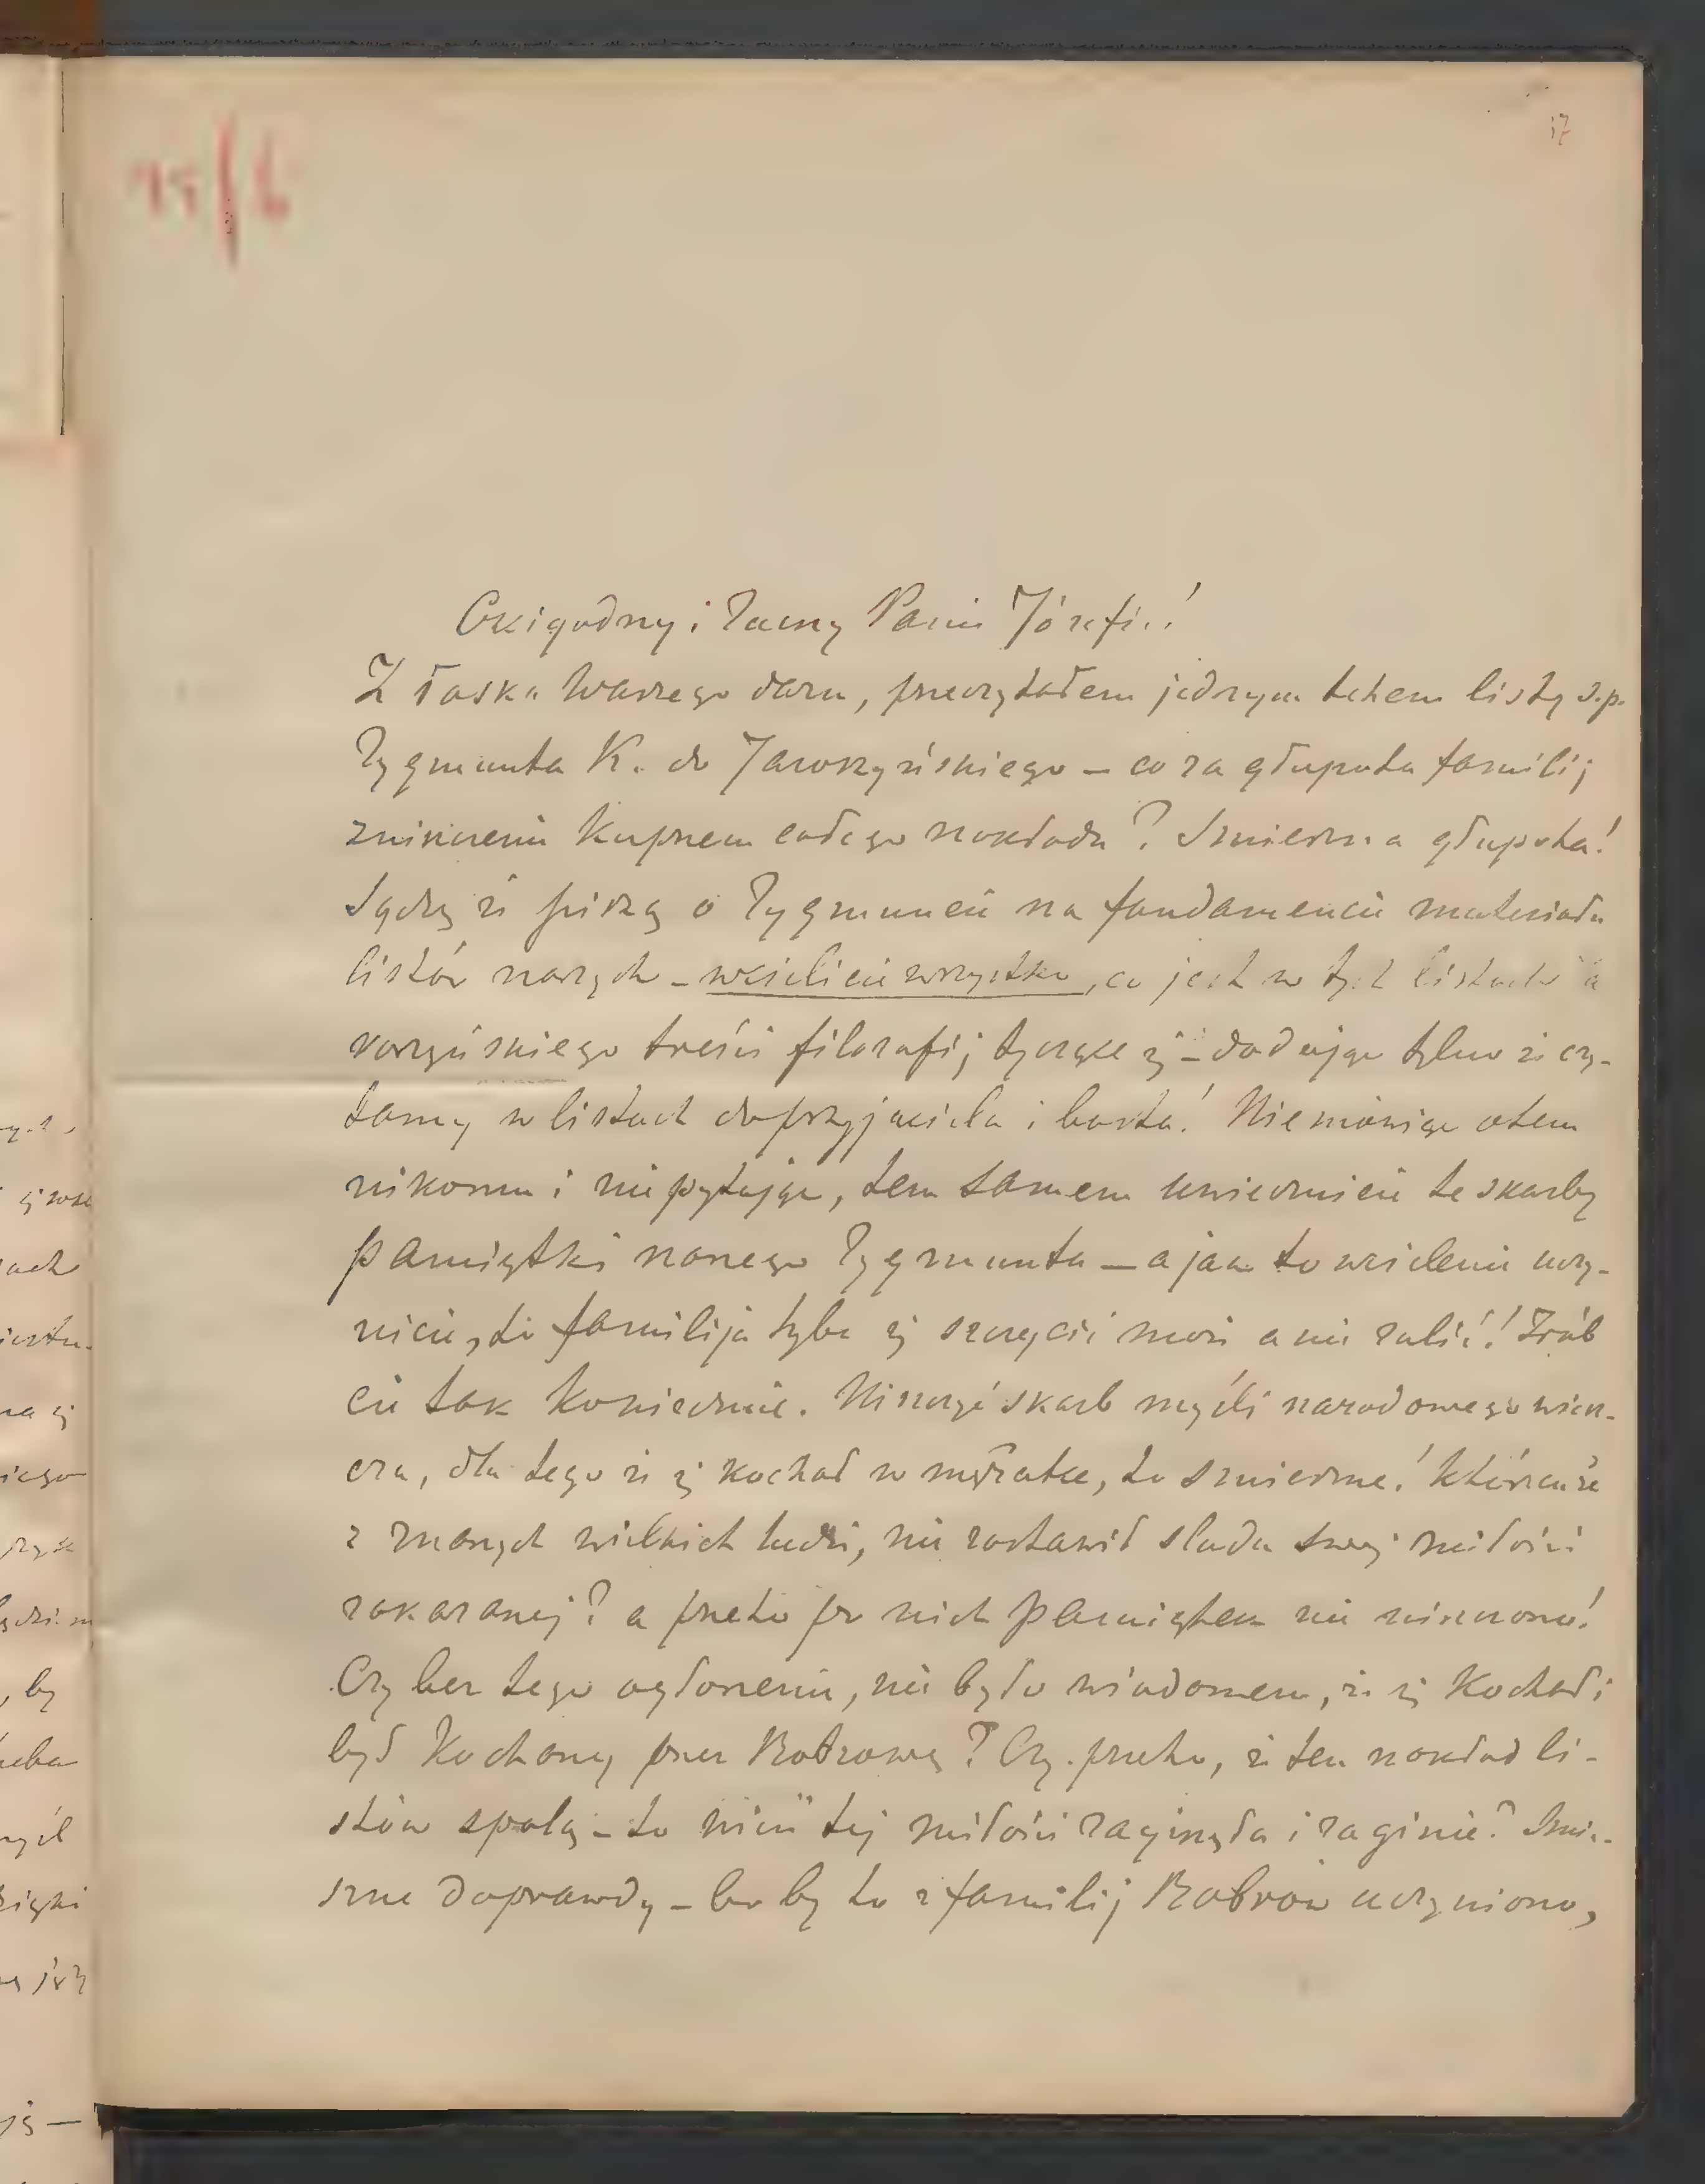 17
Czcigodny i Zacny Panie Józefie!
Z łaski Waszego daru, przeczytałem jednym tchem listy ś.p.
Zygmunta K. do Jaroszyńskiego – co za głupota familij
zniszczenie kupnem całego nakładu? Śmieszna głupota!
Sądzę że pisząc o Zygmuncie na fundamencie materiału
listów naszych – wcielicie wszystko, co jest w tych listach
roszyńskiego treści filozofij tyczące się – dodając tylko że czy-
tamy w listach do przyjaciela i basta! Nie mówiąc otem
nikomu i nie pytając, tem samem uwiecznicie te skarby
pamiątki naszego Zygmunta – a jak to wcielenie uczy-
nicie, to familija tylko się szczycić może a nie żalić! Zrób
cie tak koniecznie. Niszczyć skarb myśli narodowego wiesz-
cza, dla tego że się kochał w mężatce, to śmieszne! Któremże
z znanych wielkich ludzi, nie zostawił sladu swej miłości
zakazanej? a przeto po nich pamiątek nie niszczono!
Czy bez tego ogłoszenia, nie było wiadomem, że się kochał i
był kochany przez Bobrową? Czy przeto, że ten nakład li-
stów spalą – to nieć tej miłości zaginęła i zaginie? Śmie-
szne doprawdy – bo by to z familij Bobrów uczyniono,